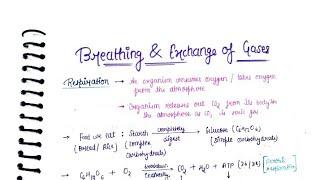 Breathing & Exchange of Gases
Respiration → An organism consumes oxygen / takes oxygen
from the atmosphere
→ Organism releases out CO2 from its body in
the atmosphere as CO2 is toxic gas
→ Food we eat : Starch completely Glucose (C6H12O6)
(Bread / Rice) (complex digest (simple carbohydrate)
carbohydrate)
→ C6H12O6 + O2 breakdown CO2 + H2O + ATP (36/38)